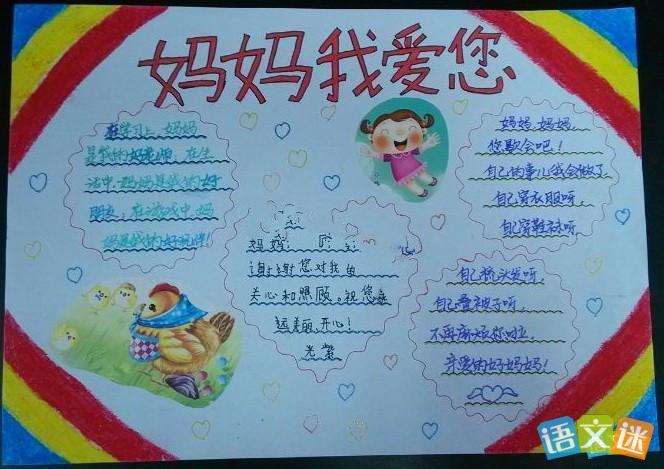 妈妈我爱您
在学习上,妈妈
是我的好老师,在生
活中妈妈是我的好
朋友,在游戏中妈
妈是我的好玩伴!
妈妈:
谢谢您对我的
关心和照顾。祝您
远美丽、开心!
妈妈,妈妈,
您歇会吧!
自己的事儿我会做了,
自己穿衣服呀,
自己穿鞋袜呀,
自己梳头发呀,
自己叠被子呀,
不再麻烦您啦,
亲爱的好妈妈!
语文迷